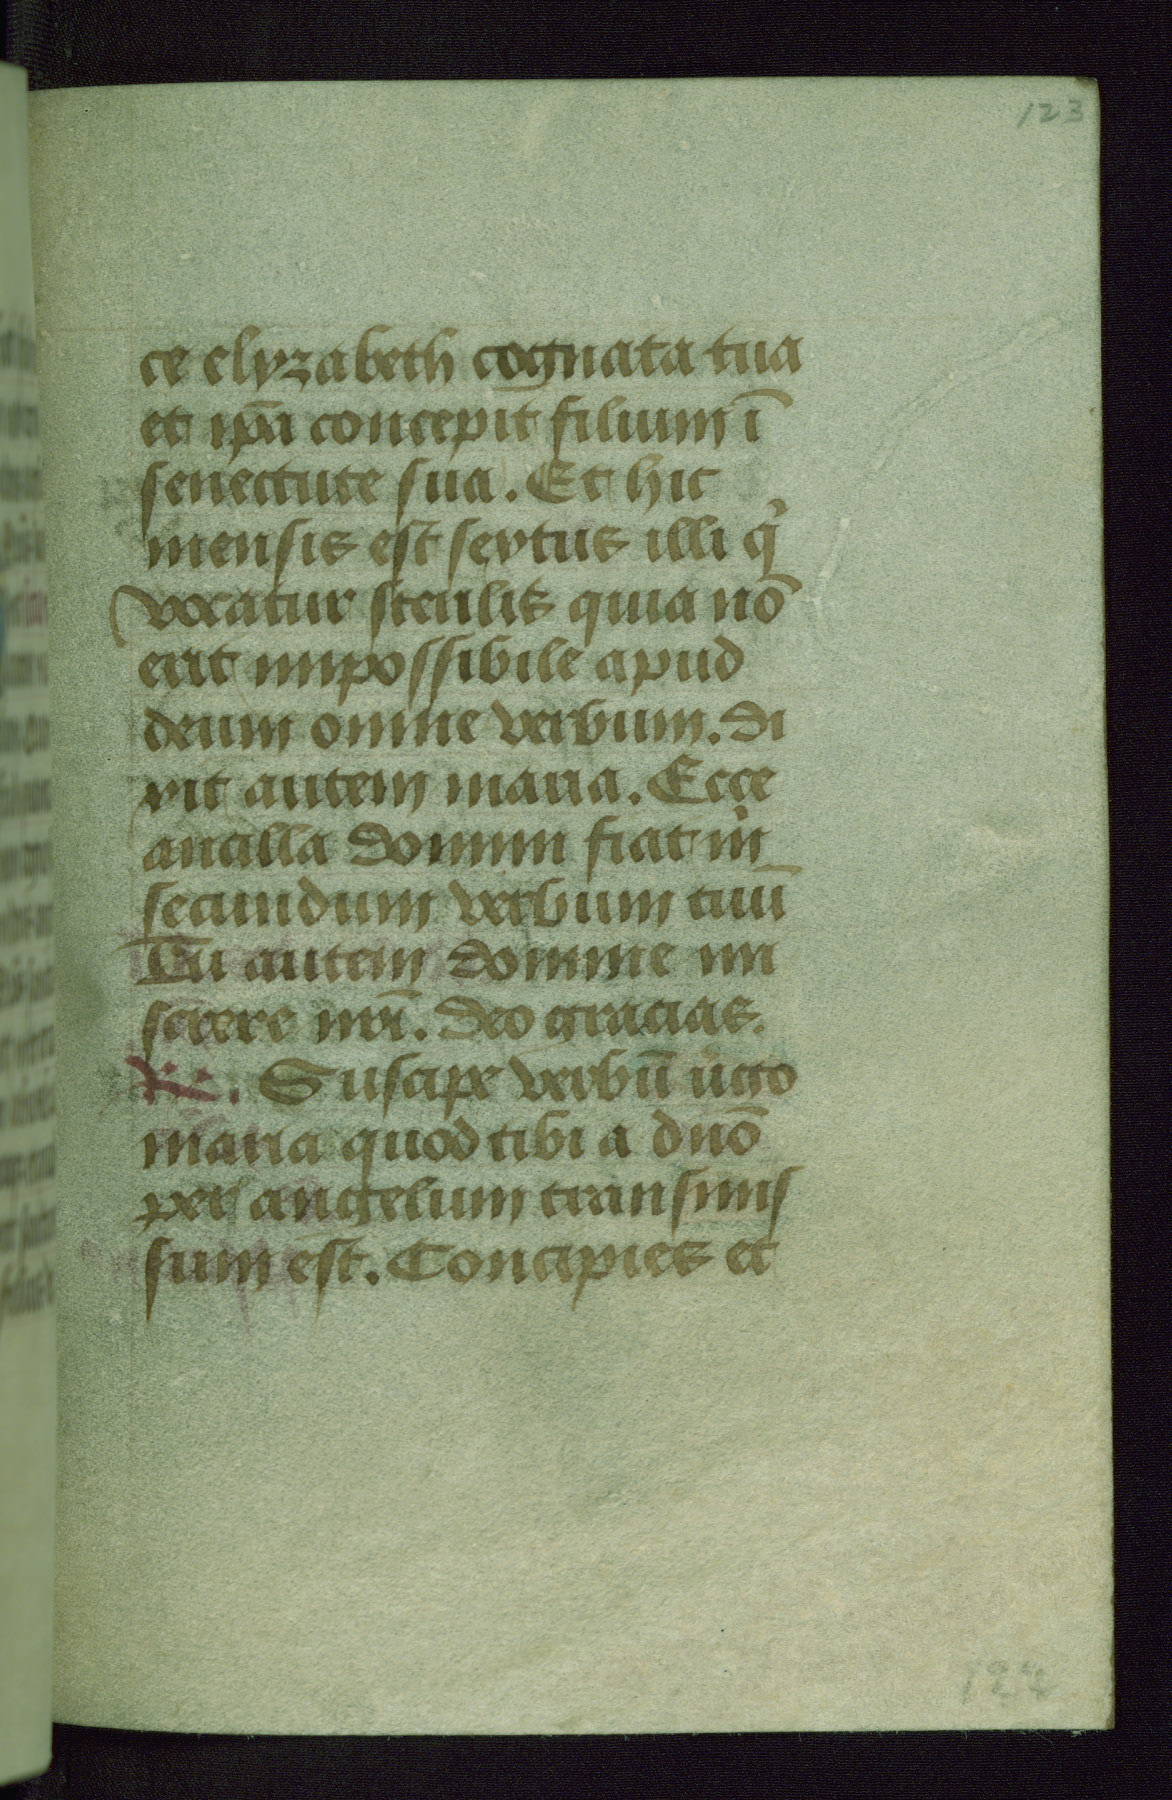 123
ce elyzabeth cognata tua
et ip̄a concepit filium ī
senectute sua. Et hic
mensis est sextus illi q̓
vocatur sterilis quia nō
erit impossibile apud
deum omne verbum. Di
xit autem maria. Ecce
ancilla domini fiat m̓
secundum verbum tuū
Tu autem domine mi
serere nr̄i. Deo gracias.
R. Suscipe verbū ůgo
maria quod tibi a dnō
per angelum transmis
sum est. Concipies et